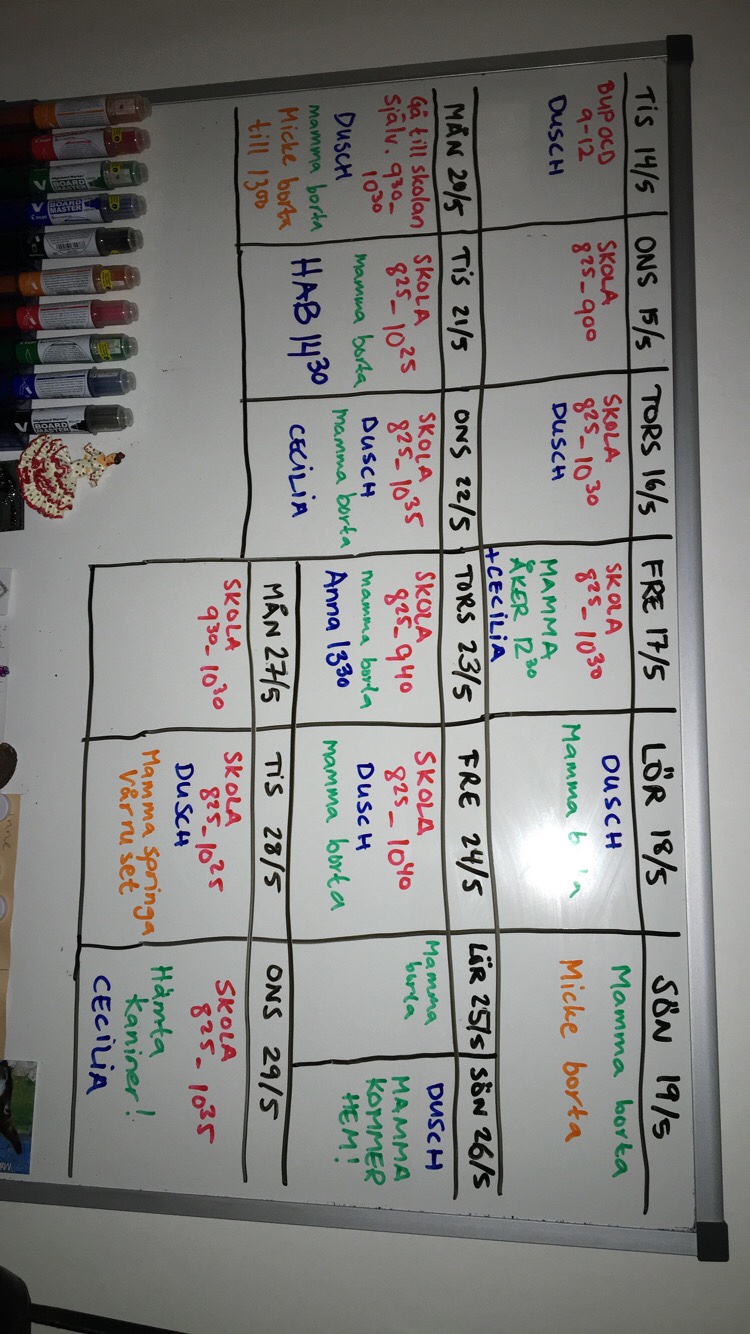 TIS 14/5
BUP OCD
9-12
DUSCH
ONS 15/5
SKOLA
825-900
TORS 16/5
SKOLA
825-1030
DUSCH
FRE 17/5
SKOLA
825-1030
MAMMA
ÅKER 1230
+CECILIA
LÖR 18/5
DUSCH
Mamma
SÖN 19/5
Mamma borta
Micke borta
MÅN 20/5
Gå till skolan
själv. 930-
1030
DUSCH
mamma borta
Micke borta
till 1300
TIS 21/5
SKOLA
825-1025
mamma borta
HAB 1430
ONS 22/5
SKOLA
825-1035
DUSCH
mamma borta
CECILIA
TORS 23/5
SKOLA
825-940
mamma borta
Anna 1330
FRE 24/5
SKOLA
825-1040
DUSCH
mamma borta
LÖR 25/5
Mamma
borta
SÖN 26/5
DUSCH
MAMMA
KOMMER
HEM!
MÅN 27/5
SKOLA
930-1030
TIS 28/5
SKOLA
825-1025
DUSCH
Mamma springa
vårruset
ONS 29/5
SKOLA
825-1035
Hämta
kaniner!
CECILIA
BOARD
MASTER
BOARD
MASTER
BOARD
MASTER
BOARD
MASTER